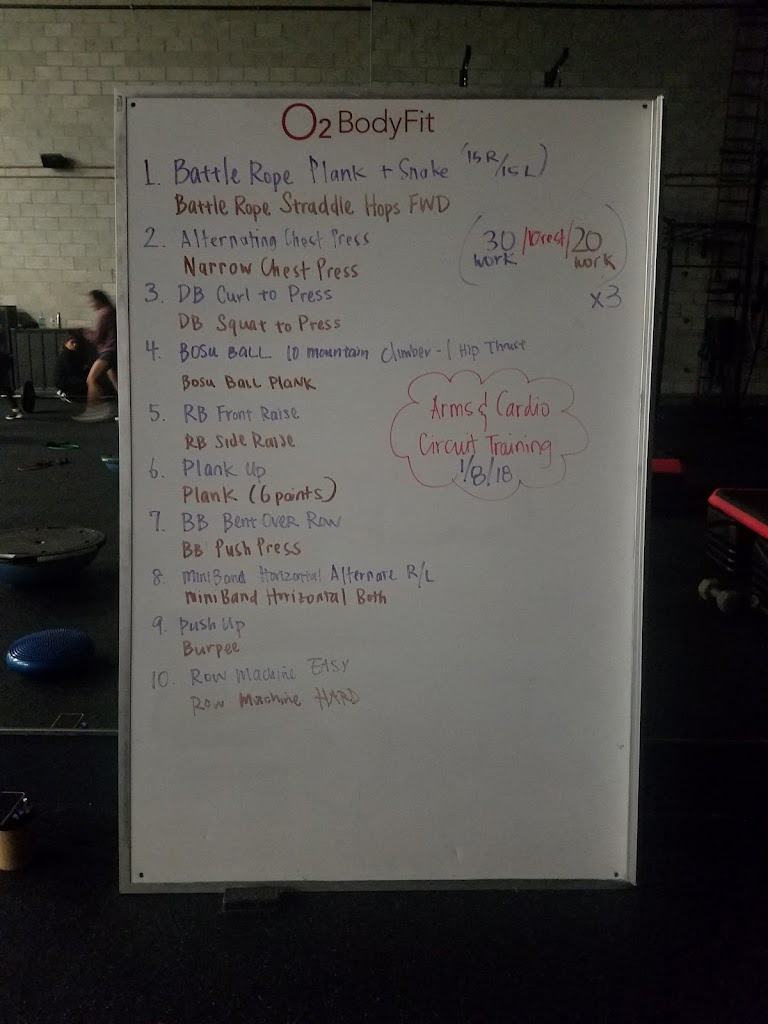 O2 BodyFit
1. Battle Rope Plank + Snake (15R/15L)
Battle Rope Straddle Hops FWD
2. Alternating Chest Press
Narrow Chest Press
(30 work /10 rest/ 20 work)
x3
3. DB Curl to Press
DB Squat to Press
4. BOSU BALL 10 mountain Climber - 1 Hip Thrust
BOSU BALL PLANK
5. RB Front Raise
RB Side Raise
Arms & Cardio
Circuit Training
1/8/18
6. Plank Up
Plank (6 points)
7. BB Bent Over Row
BB Push Press
8. miniBand Horizontal Alternate R/L
miniBand Horizontal Both
9. Push Up
Burpee
10. Row Machine EASY
Row Machine HARD